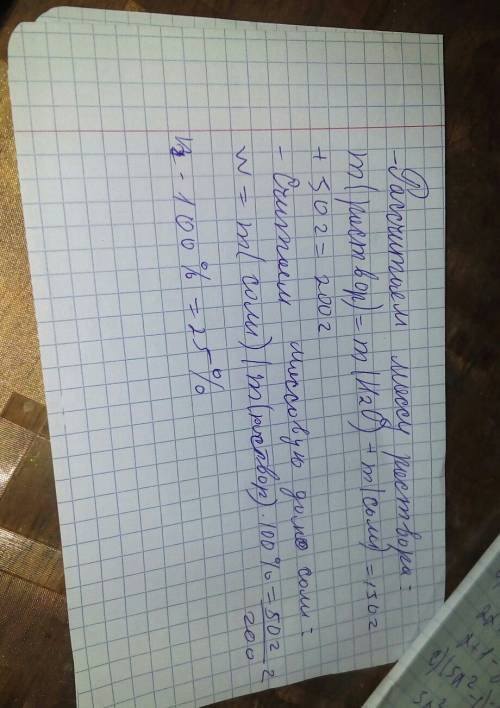 - Рассчитаем массу раствора:
m(раствор) = m(H2O) + m(соли) = 150г
+ 50г = 200г
- Считаем массовую долю соли:
w = m(соли) / m(раствор) · 100% = 50г / 200
· 100% = 25%
2x
x+1-